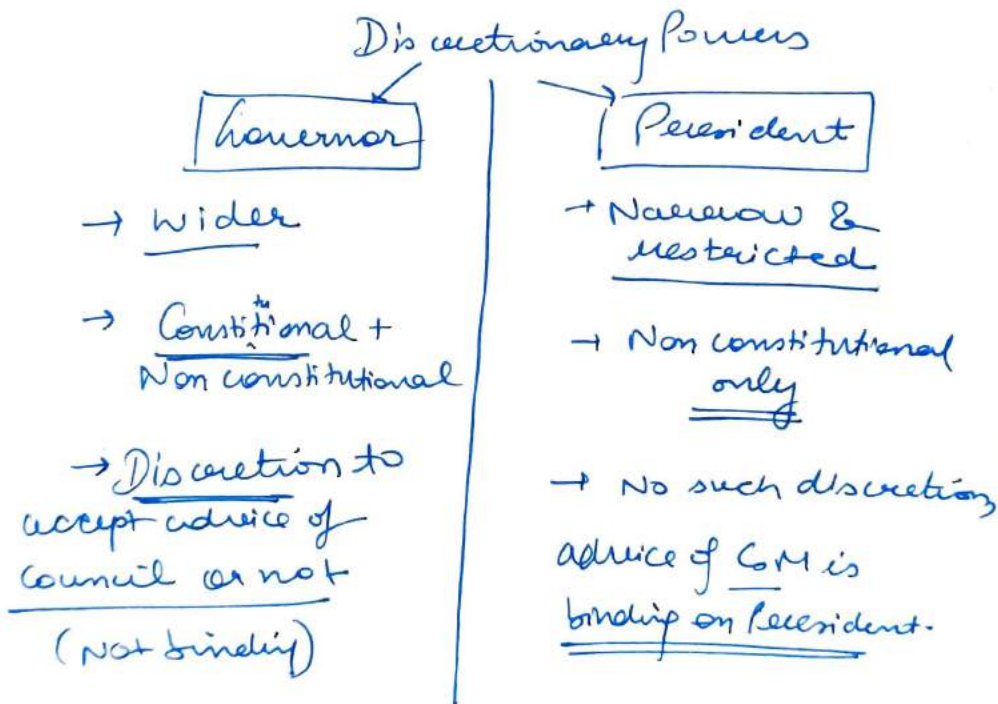 Discretionary Powers
Governor
→ Wider
→ Constitutional +
Non constitutional
→ Discretion to
accept advice of
council or not
(Not binding)
President
→ Narrow &
restricted
→ Non constitutional
only
→ No such discretion,
advice of CoM is
binding on President.